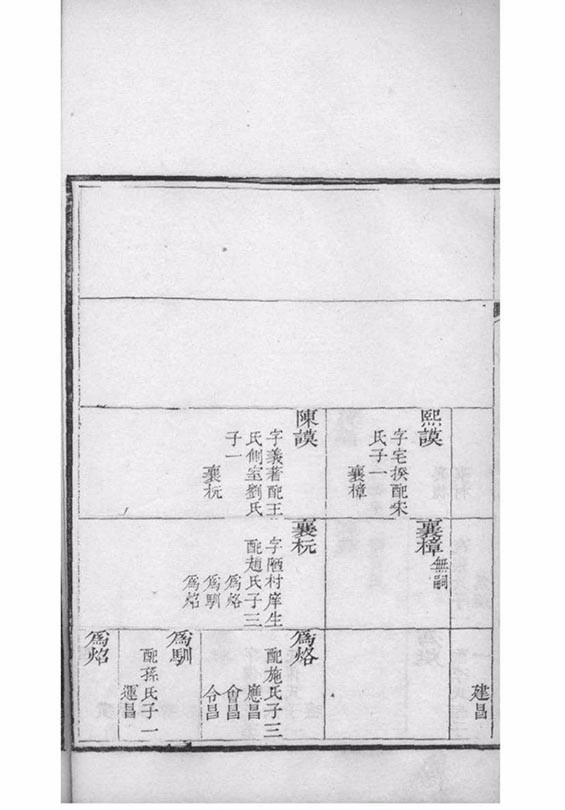 熙謨
字宅揆配朱
氏子一
襄樟
陳謨
字義著配王
氏側室劉氏
子一
襄杬
襄樟
無嗣
襄杬
字陋村庠生
配趙氏子三
爲烙
爲馴
爲焰
建昌
爲烙
配施氏子三
應昌
會昌
令昌
爲馴
配孫氏子一
運昌
爲焰